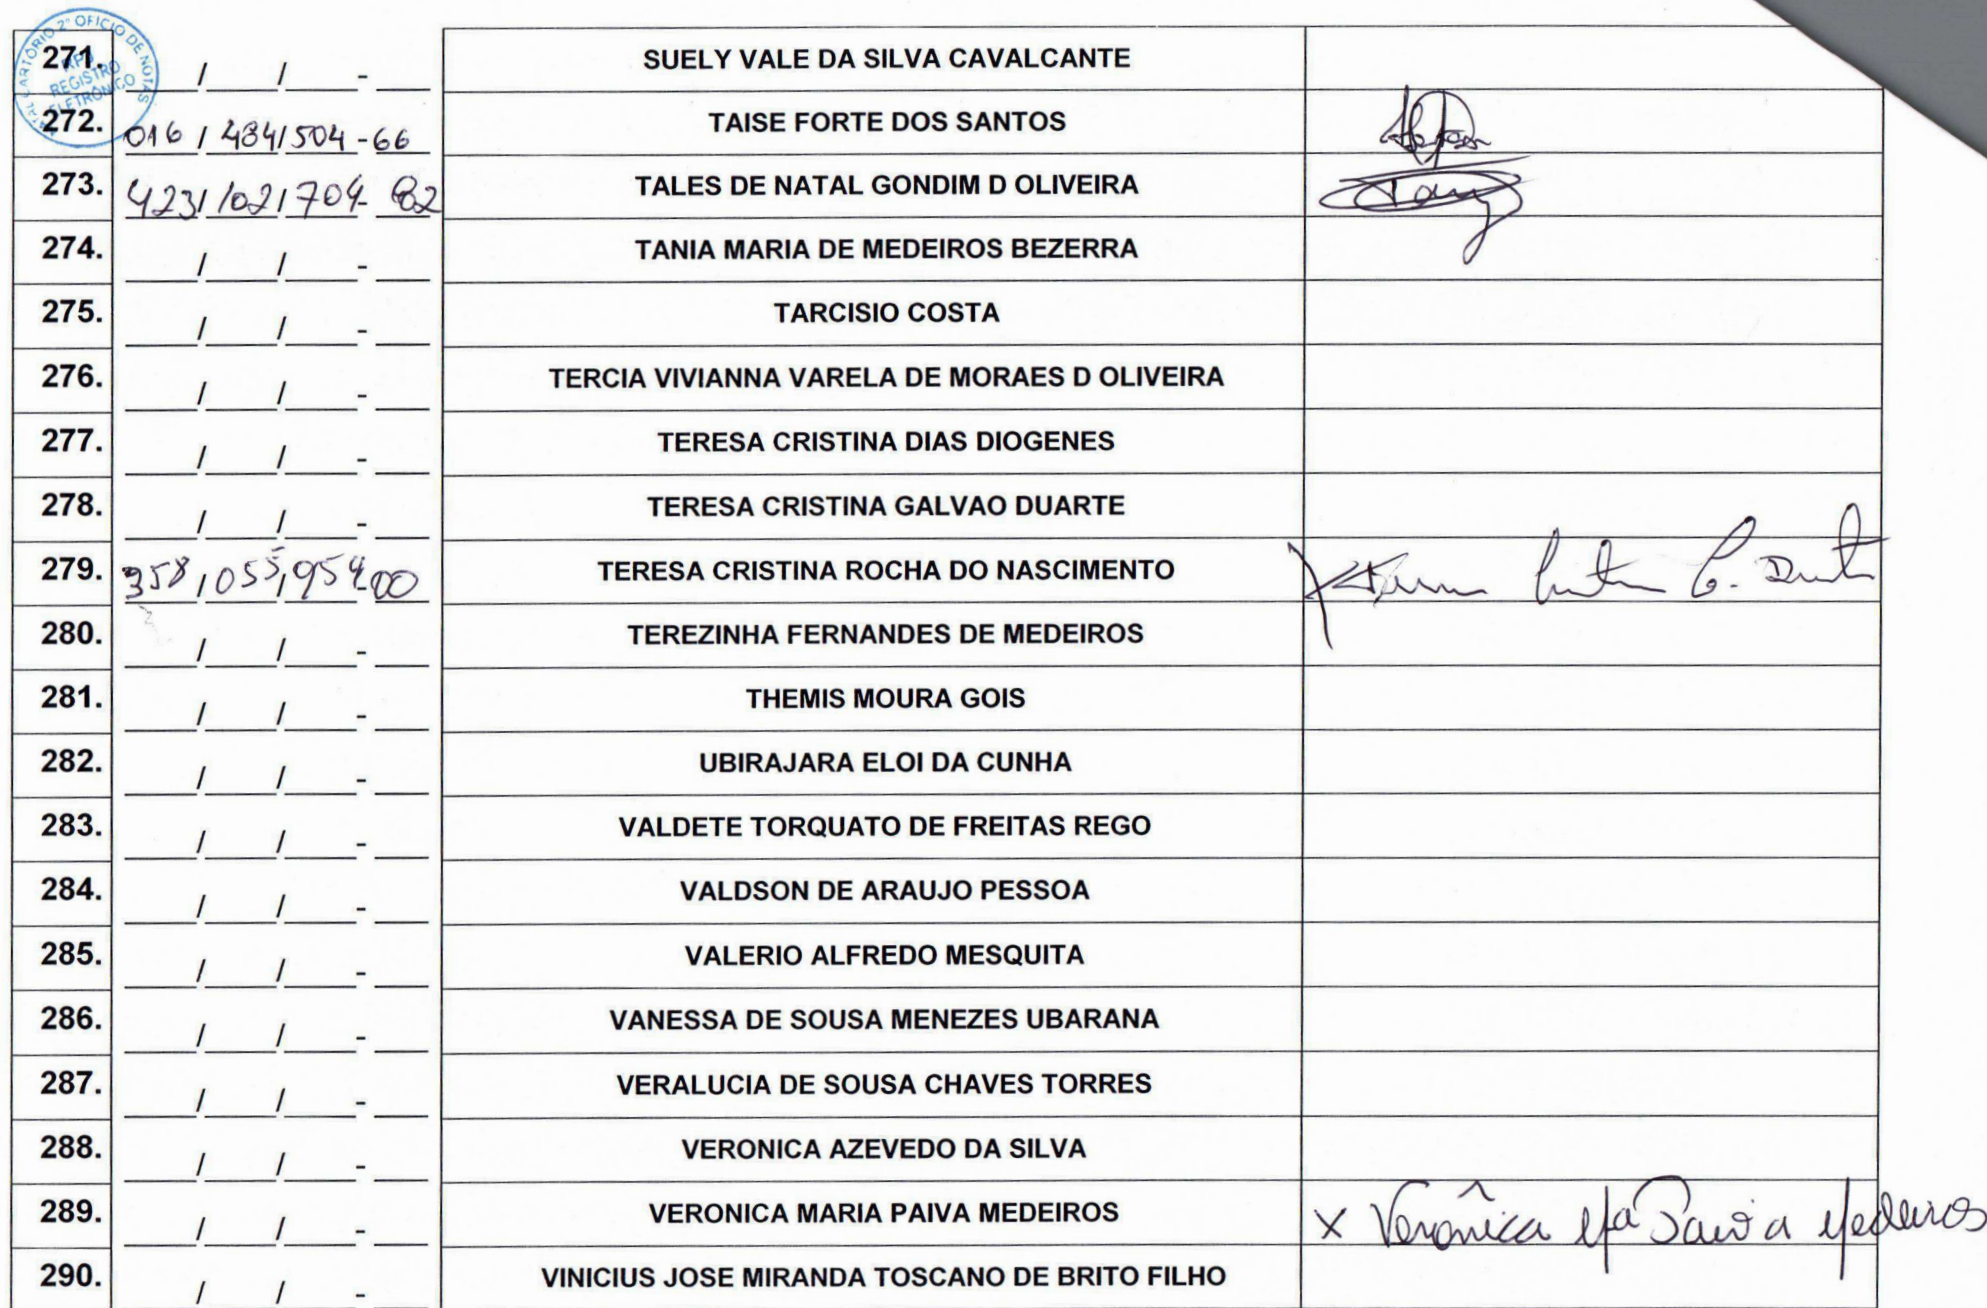 NATAL CARTÓRIO 2° OFICIO DE NOTAS
REGISTRO
ELETRÔNICO
271. / / - SUELY VALE DA SILVA CAVALCANTE
272. 016 / 484 / 504 - 66 TAISE FORTE DOS SANTOS
273. 423 / 102 / 704 - 82 TALES DE NATAL GONDIM D OLIVEIRA
274. / / - TANIA MARIA DE MEDEIROS BEZERRA
275. / / - TARCISIO COSTA
276. / / - TERCIA VIVIANNA VARELA DE MORAES D OLIVEIRA
277. / / - TERESA CRISTINA DIAS DIOGENES
278. / / - TERESA CRISTINA GALVAO DUARTE
279. 358 / 055 / 954 - 00 TERESA CRISTINA ROCHA DO NASCIMENTO
280. / / - TEREZINHA FERNANDES DE MEDEIROS
281. / / - THEMIS MOURA GOIS
282. / / - UBIRAJARA ELOI DA CUNHA
283. / / - VALDETE TORQUATO DE FREITAS REGO
284. / / - VALDSON DE ARAUJO PESSOA
285. / / - VALERIO ALFREDO MESQUITA
286. / / - VANESSA DE SOUSA MENEZES UBARANA
287. / / - VERALUCIA DE SOUSA CHAVES TORRES
288. / / - VERONICA AZEVEDO DA SILVA
289. / / - VERONICA MARIA PAIVA MEDEIROS X Verônica Mª Paiva Medeiros
290. / / - VINICIUS JOSE MIRANDA TOSCANO DE BRITO FILHO